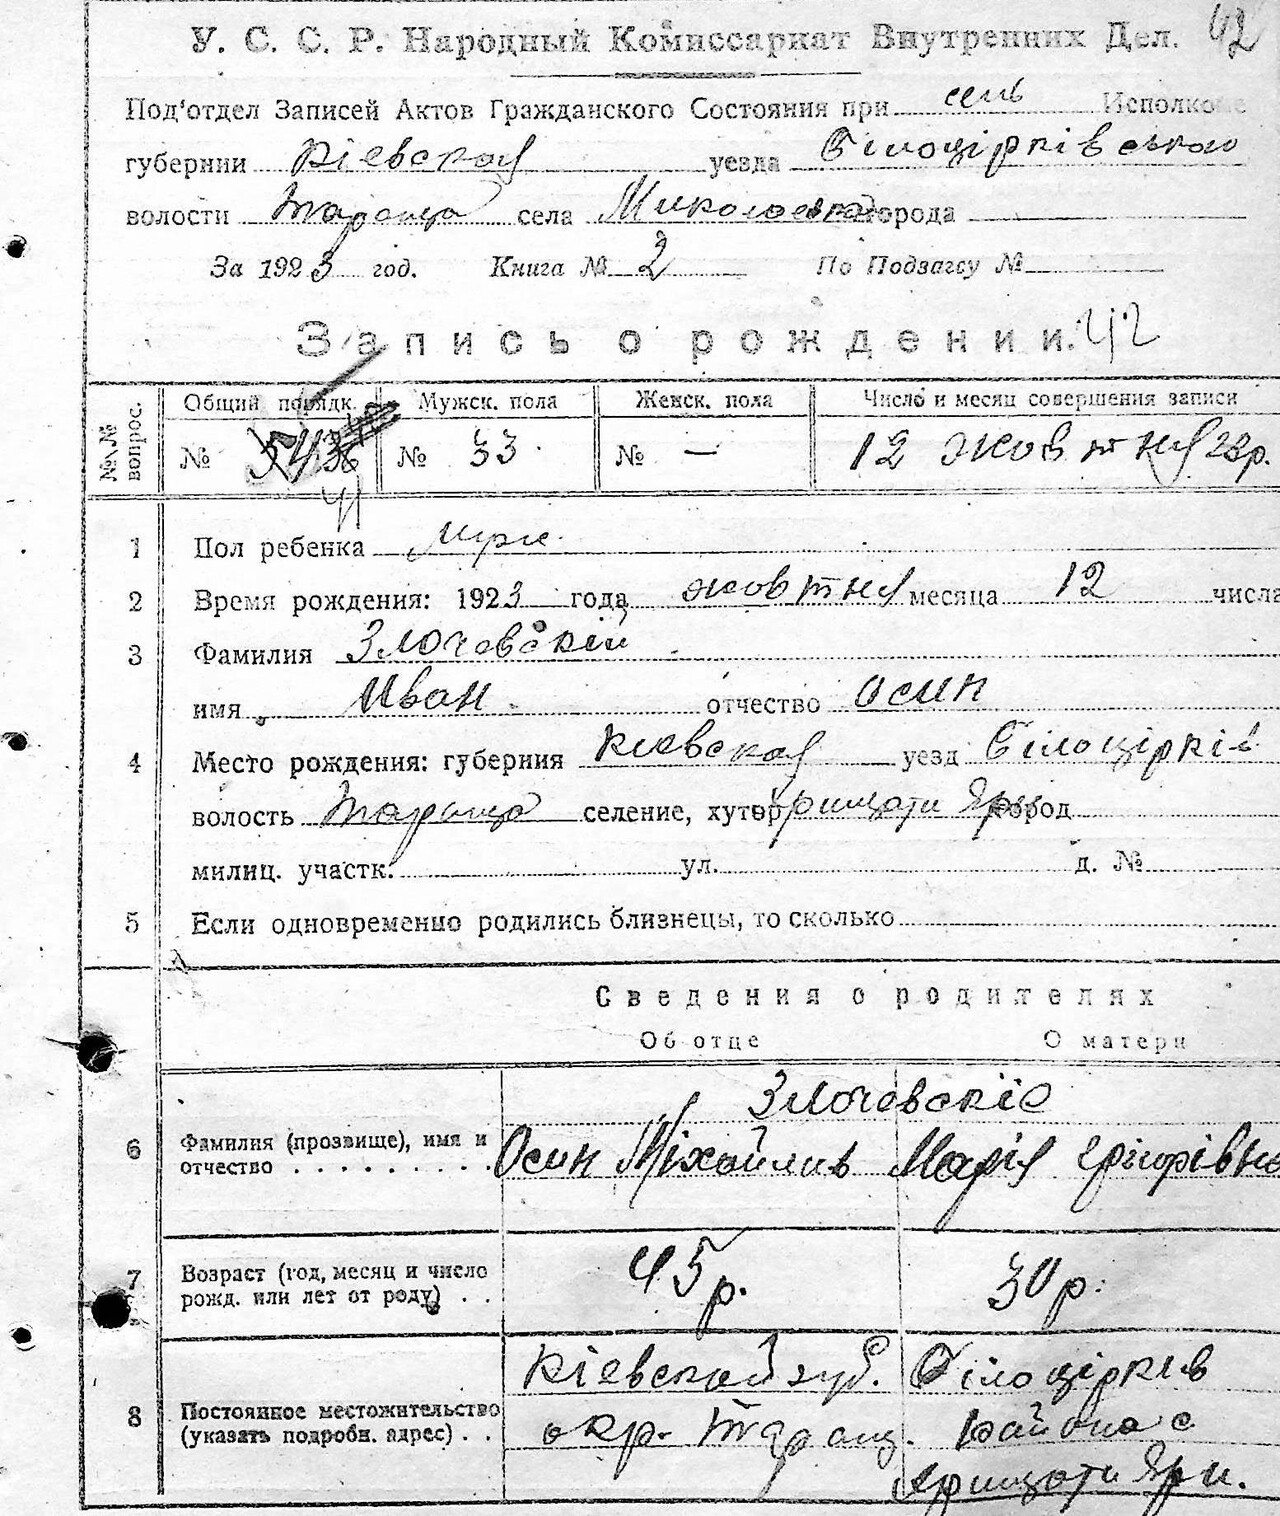 У. С. С. Р. Народный Комиссариат Внутренних Дел. 42
Под'отдел Записей Актов Гражданского Состояния при сель Исполкоме
губернии Кіевская уезда Білоцірківського
волости Тараща села Миколаевка города
За 1923 год. Книга № 2 По Подзагсу №
Запись о рождении. 42
№№ вопрос. Общий порядк. Мужск. пола Женск. пола Число и месяц совершения записи
№ № 33 № — 12 жовтня 23р.
41
1 Пол ребенка муж.
2 Время рождения: 1923 года жовтня месяца 12 числа
3 Фамилия Злочевскій
имя Иван отчество Осип
4 Место рождения: губерния Кіевская уезд Білоцірків
волость Тараща селение, хутор Крищати Яри город
милиц. участк. ул. д. №
5 Если одновременно родились близнецы, то сколько
Сведения о родителях
Об отце О матери
Злочевскіе
6 Фамилия (прозвище), имя и Осип Міхайлив Марія Грігорівна
отчество . . . . . . . . .
7 Возраст (год, месяц и число 45 р. 30 р.
рожд. или лет от роду) . .
Кіевской губ. Білоцірків
8 Постоянное местожительство окр. Таращ. района с
(указать подробн. адрес) . .
Крищати Яри.